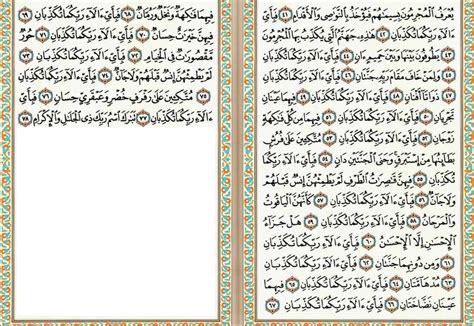 يُعْرَفُ الْمُجْرِمُونَ بِسِيمَٰهُمْ فَيُؤْخَذُ بِالنَّوَٰصِي وَالْأَقْدَامِ ٤١ فَبِأَيِّ
ءَالَآءِ رَبِّكُمَا تُكَذِّبَانِ ٤٢ هَٰذِهِ جَهَنَّمُ الَّتِي يُكَذِّبُ بِهَا الْمُجْرِمُونَ ٤٣
يَطُوفُونَ بَيْنَهَا وَبَيْنَ حَمِيمٍ ءَانٍ ٤٤ فَبِأَيِّ ءَالَآءِ رَبِّكُمَا تُكَذِّبَانِ ٤٥
وَلِمَنْ خَافَ مَقَامَ رَبِّهِ جَنَّتَانِ ٤٦ فَبِأَيِّ ءَالَآءِ رَبِّكُمَا تُكَذِّبَانِ
٤٧ ذَوَاتَآ أَفْنَانٍ ٤٨ فَبِأَيِّ ءَالَآءِ رَبِّكُمَا تُكَذِّبَانِ ٤٩ فِيهِمَا عَيْنَانِ
تَجْرِيَانِ ٥٠ فَبِأَيِّ ءَالَآءِ رَبِّكُمَا تُكَذِّبَانِ ٥١ فِيهِمَا مِن كُلِّ فَٰكِهَةٍ
زَوْجَانِ ٥٢ فَبِأَيِّ ءَالَآءِ رَبِّكُمَا تُكَذِّبَانِ ٥٣ مُتَّكِـِٔينَ عَلَىٰ فُرُشٍ
بَطَآئِنُهَا مِنْ إِسْتَبْرَقٍ وَجَنَى الْجَنَّتَيْنِ دَانٍ ٥٤ فَبِأَيِّ ءَالَآءِ رَبِّكُمَا
تُكَذِّبَانِ ٥٥ فِيهِنَّ قَٰصِرَٰتُ الطَّرْفِ لَمْ يَطْمِثْهُنَّ إِنسٌ قَبْلَهُمْ
وَلَا جَآنٌّ ٥٦ فَبِأَيِّ ءَالَآءِ رَبِّكُمَا تُكَذِّبَانِ ٥٧ كَأَنَّهُنَّ الْيَاقُوتُ
وَالْمَرْجَانُ ٥٨ فَبِأَيِّ ءَالَآءِ رَبِّكُمَا تُكَذِّبَانِ ٥٩ هَلْ جَزَآءُ
الْإِحْسَٰنِ إِلَّا الْإِحْسَٰنُ ٦٠ فَبِأَيِّ ءَالَآءِ رَبِّكُمَا تُكَذِّبَانِ
٦١ وَمِن دُونِهِمَا جَنَّتَانِ ٦٢ فَبِأَيِّ ءَالَآءِ رَبِّكُمَا تُكَذِّبَانِ
٦٣ مُدْهَآمَّتَانِ ٦٤ فَبِأَيِّ ءَالَآءِ رَبِّكُمَا تُكَذِّبَانِ ٦٥ فِيهِمَا
عَيْنَانِ نَضَّاخَتَانِ ٦٦ فَبِأَيِّ ءَالَآءِ رَبِّكُمَا تُكَذِّبَانِ ٦٧
فِيهِمَا فَٰكِهَةٌ وَنَخْلٌ وَرُمَّانٌ ٦٨ فَبِأَيِّ ءَالَآءِ رَبِّكُمَا تُكَذِّبَانِ ٦٩
فِيهِنَّ خَيْرَٰتٌ حِسَانٌ ٧٠ فَبِأَيِّ ءَالَآءِ رَبِّكُمَا تُكَذِّبَانِ ٧١ حُورٌ
مَّقْصُورَٰتٌ فِي الْخِيَامِ ٧٢ فَبِأَيِّ ءَالَآءِ رَبِّكُمَا تُكَذِّبَانِ ٧٣
لَمْ يَطْمِثْهُنَّ إِنسٌ قَبْلَهُمْ وَلَا جَآنٌّ ٧٤ فَبِأَيِّ ءَالَآءِ رَبِّكُمَا تُكَذِّبَانِ
٧٥ مُتَّكِـِٔينَ عَلَىٰ رَفْرَفٍ خُضْرٍ وَعَبْقَرِيٍّ حِسَانٍ ٧٦ فَبِأَيِّ
ءَالَآءِ رَبِّكُمَا تُكَذِّبَانِ ٧٧ تَبَٰرَكَ اسْمُ رَبِّكَ ذِي الْجَلَٰلِ وَالْإِكْرَامِ ٧٨